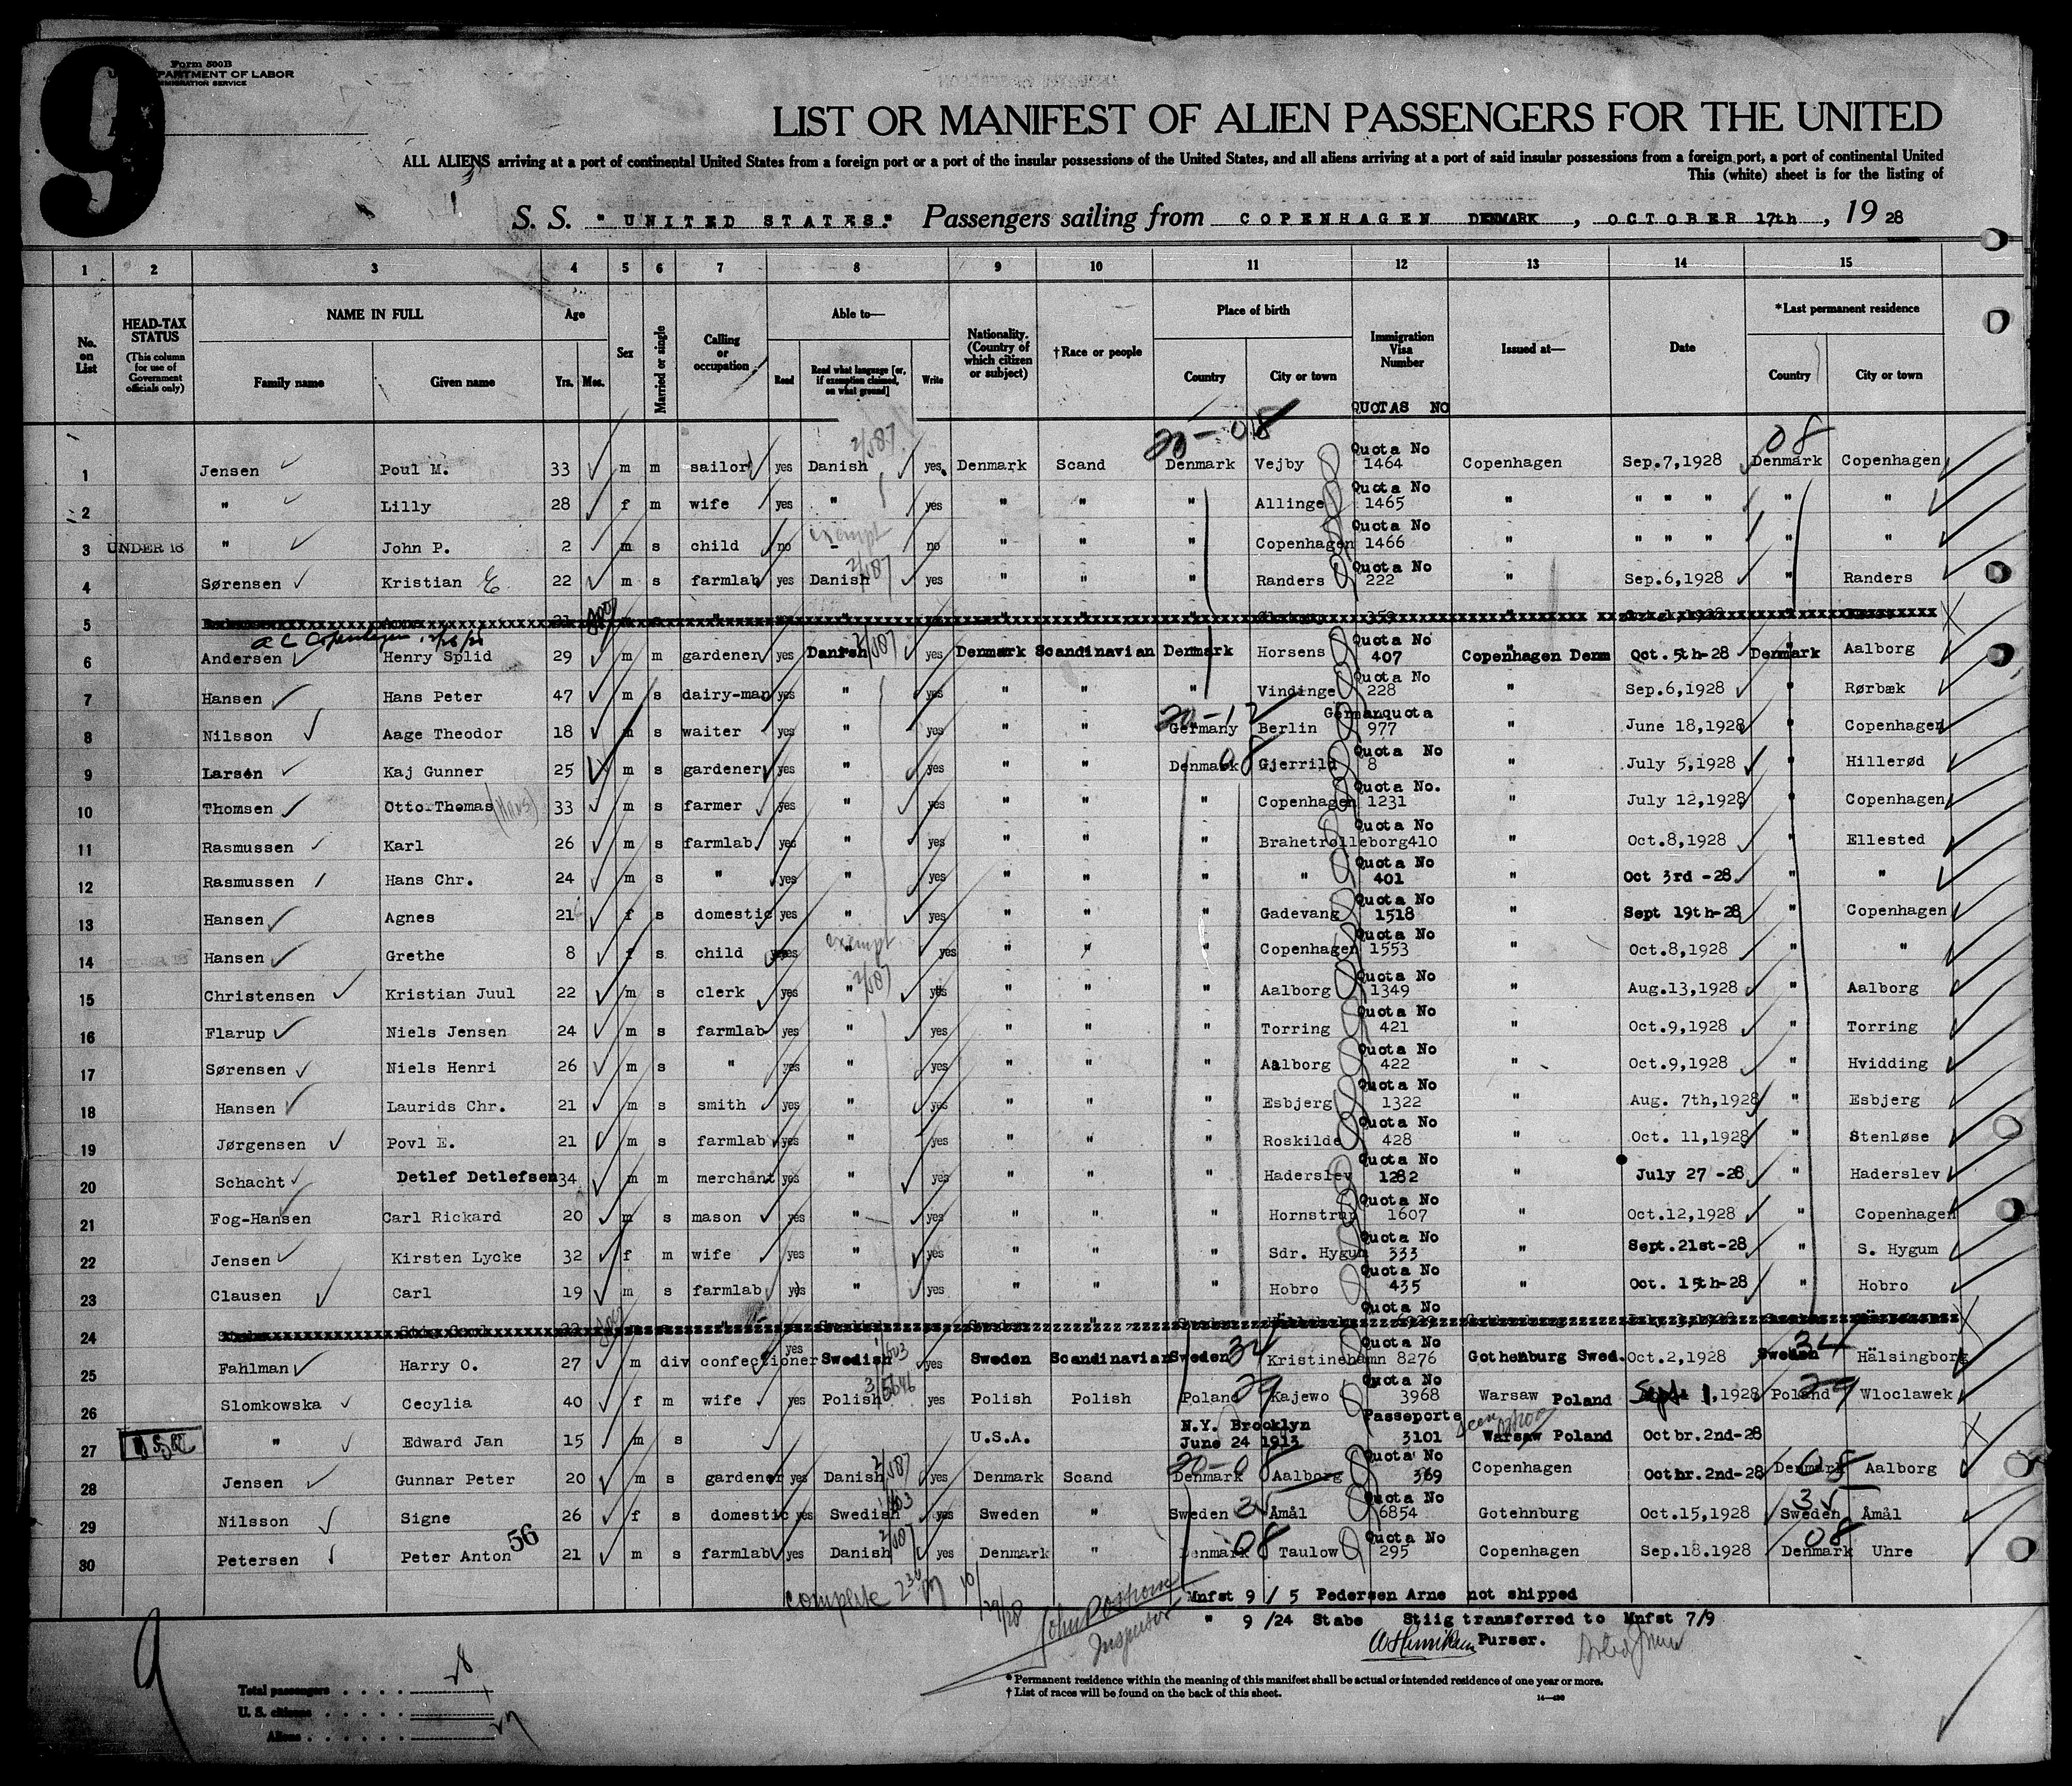 9
Form 500B
DEPARTMENT OF LABOR
IMMIGRATION SERVICE
LIST OR MANIFEST OF ALIEN PASSENGERS FOR THE UNITED
ALL ALIENS arriving at a port of continental United States from a foreign port or a port of the insular possessions of the United States, and all aliens arriving at a port of said insular possessions from a foreign port, a port of continental United
This (white) sheet is for the listing of
S. S. "UNITED STATES." Passengers sailing from COPENHAGEN DENMARK, OCTOBER 17th, 1928
1 2 3 4 5 6 7 8 9 10 11 12 13 14 15
No. on List
HEAD-TAX STATUS (This column for use of Government officials only)
NAME IN FULL
Family name Given name
Age
Yrs. Mos.
Sex
Married or single
Calling or occupation
Able to—
Read Read what language [or, if exemption claimed, on what ground] Write
Nationality. (Country of which citizen or subject)
†Race or people
Place of birth
Country City or town
Immigration Visa Number
QUOTAS NO
Issued at—
Date
*Last permanent residence
Country City or town
20-08 08
1 Jensen Poul M. 33 m m sailor yes Danish 2/587 yes. Denmark Scand Denmark Vejby Quota No 1464 Copenhagen Sep.7,1928 Denmark Copenhagen
2 " Lilly 28 f m wife yes " yes " " " Allinge Quota No 1465 " " " " " "
3 UNDER 16 " John P. 2 m s child no exempt - no " " " Copenhagen Quota No 1466 " " " " " "
4 Sørensen Kristian E 22 m s farmlab yes Danish 2/587 yes " " " Randers Quota No 222 " Sep.6,1928 " Randers
5
6 Andersen Henry Splid 29 m m gardener yes Danish 2/587 yes Denmark Scandinavian Denmark Horsens Quota No 407 Copenhagen Denm Oct.5th-28 Denmark Aalborg
7 Hansen Hans Peter 47 m s dairy-man yes " yes " " " Vindinge Quota No 228 " Sep.6,1928 " Rørbæk
8 Nilsson Aage Theodor 18 m s waiter yes " yes " " 20-12 Germany Berlin Germanquota 977 " June 18,1928 " Copenhagen
9 Larsen Kaj Gunner 25 m s gardener yes " yes " " Denmark 08 Gjerrild Quota No 8 " July 5,1928 " Hillerød
10 Thomsen Otto Thomas (Hans) 33 m s farmer yes " yes " " " Copenhagen Quota No. 1231 " July 12,1928 " Copenhagen
11 Rasmussen Karl 26 m s farmlab yes " yes " " " Brahetrolleborg Quota No 410 " Oct.8,1928 " Ellested
12 Rasmussen Hans Chr. 24 m s " yes " yes " " " " Quota No 401 " Oct 3rd -28. " "
13 Hansen Agnes 21 f s domestic yes " yes " " " Gadevang Quota No 1518 " Sept 19th-28 " Copenhagen
14 Hansen Grethe 8 f s child yes exempt " yes " " " Copenhagen Quota No 1553 " Oct.8,1928 " "
15 Christensen Kristian Juul 22 m s clerk yes " 2/587 yes " " " Aalborg Quota No 1349 " Aug.13,1928 " Aalborg
16 Flarup Niels Jensen 24 m s farmlab yes " yes " " " Torring Quota No 421 " Oct.9,1928 " Torring
17 Sørensen Niels Henri 26 m s " yes " yes " " " Aalborg Quota No 422 " Oct.9,1928 " Hvidding
18 Hansen Laurids Chr. 21 m s smith yes " yes " " " Esbjerg Quota No 1322 " Aug. 7th,1928 " Esbjerg
19 Jørgensen Povl E. 21 m s farmlab yes " yes " " " Roskilde Quota No 428 " Oct. 11,1928 " Stenløse
20 Schacht Detlef Detlefsen 34 m m merchant yes " yes " " " Haderslev Quota No 1282 " July 27 -28 " Haderslev
21 Fog-Hansen Carl Rickard 20 m s mason yes " yes " " " Hornstrup Quota No 1607 " Oct.12,1928 " Copenhagen
22 Jensen Kirsten Lycke 32 f m wife yes " yes " " " Sdr. Hygum Quota No 333 " Sept.21st-28 " S. Hygum
23 Clausen Carl 19 m s farmlab yes " yes " " " Hobro Quota No 435 " Oct. 15th-28 " Hobro
24 Quota No
25 Fahlman Harry O. 27 m div confectioner yes Swedish yes Sweden Scandinavian Sweden 34 Kristinehamn Quota No 8276 Gothenburg Swed. Oct.2,1928 Sweden 34 Hälsingborg
26 Slomkowska Cecylia 40 f m wife yes Polish 3/5646 yes Polish Polish Poland 29 Kajewo Quota No 3968 Warsaw Poland Sept 1,1928 Poland 29 Wloclawek
27 " Edward Jan 15 m s U.S.A. N.Y. Brooklyn June 24 1913 Passeporte 3101 Warsaw Poland Octbr.2nd-28
28 Jensen Gunnar Peter 20 m s gardener yes Danish 2/587 yes Denmark Scand 20-08 Denmark Aalborg Quota No 369 Copenhagen Octbr.2nd-28 Denmark 08 Aalborg
29 Nilsson Signe 26 f s domestic yes Swedish yes Sweden " Sweden Åmål Quota No 6854 Gotehnburg Oct.15,1928 Sweden Åmål
30 Petersen Peter Anton 56 21 m s farmlab yes Danish 2/587 yes Denmark " Denmark 08 Taulow Quota No 295 Copenhagen Sep.18.1928 Denmark 08 Uhre
complete
Mnfst 9 / 5 Pedersen Arne not shipped
" 9 /24 Stabe Stiig transferred to Mnfst 7/9
Inspector
Purser.
9
Total passengers 28
U. S. citizens 1
Aliens 27
*Permanent residence within the meaning of this manifest shall be actual or intended residence of one year or more.
†List of races will be found on the back of this sheet.